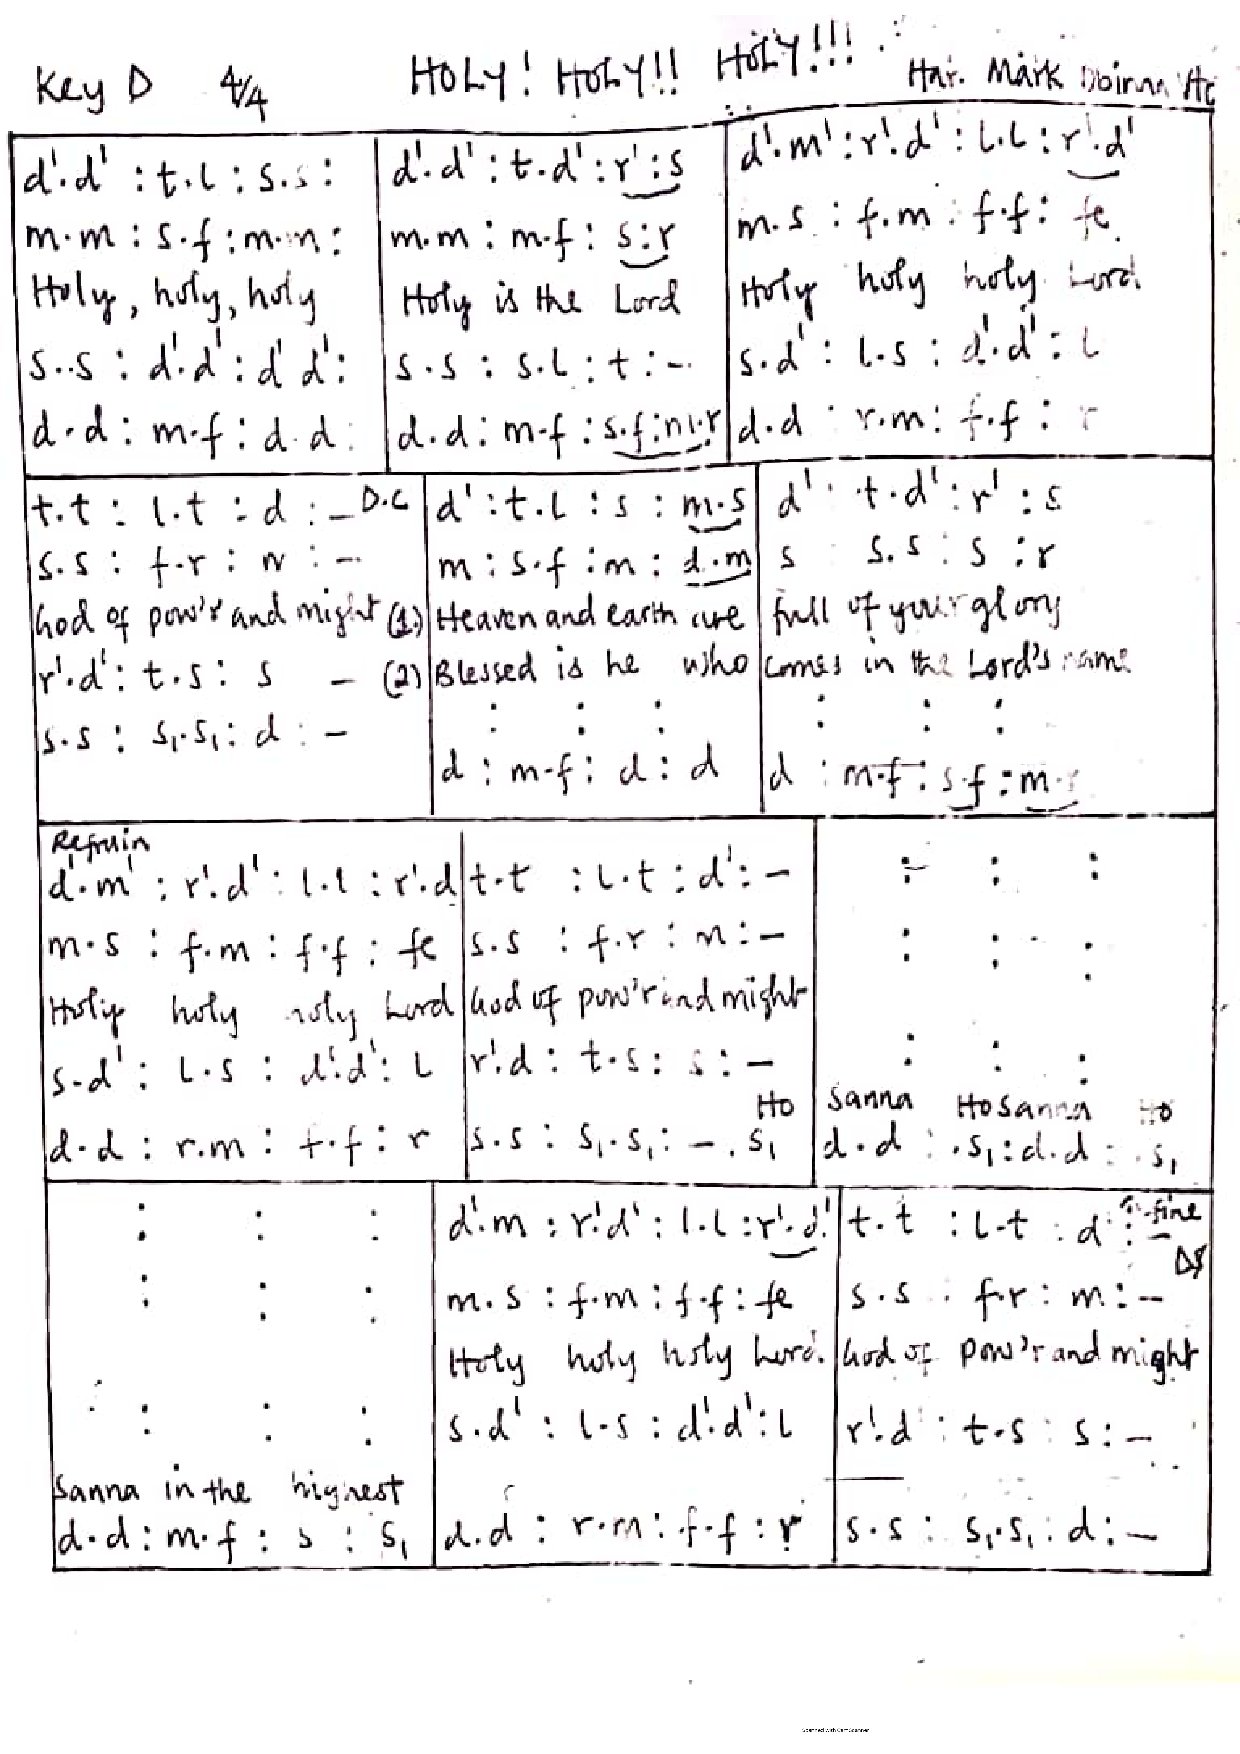 HOLY! HOLY!! HOLY!!!
Key D 4/4
Har. Mark
d'.d' : t.l : s.s :
m.m : s.f : m.m :
Holy, holy, holy
s.s : d'.d' : d' d' :
d.d : m.f : d.d :
d'.d' : t.d' : r' : s
m.m : m.f : s : r
Holy is the Lord
s.s : s.l : t : -
d.d : m.f : s.f : m.r
d'.m' : r'.d' : l.l : r'.d'
m.s : f.m : f.f : fe
Holy holy holy Lord.
s.d' : l.s : d'.d' : l
d.d : r.m : f.f : r
t.t : l.t : d : - D.C
s.s : f.r : m : -
God of pow'r and might
r'.d' : t.s : s -
s.s : s₁.s₁ : d : -
d' : t.l : s : m.s
m : s.f : m : d.m
(1) Heaven and earth are
(2) Blessed is he who
: : :
d : m.f : d : d
d' : t.d' : r' : s
s s.s : s : r
full of your glory
comes in the Lord's name
: : :
d : m.f : s.f : m.r
Refrain
d'.m' : r'.d' : l.l : r'.d
m.s : f.m : f.f : fe
Holy holy holy Lord
s.d' : l.s : d'.d' : l
d.d : r.m : f.f : r
t.t : l.t : d' : -
s.s : f.r : m : -
God of pow'r and might
r'.d : t.s : s : -
Ho
s.s : s₁.s₁ : - . s₁
: : :
: : :
: : :
Sanna HoSanna Ho
d.d : .s₁ : d.d : .s₁
: : :
: : :
: : :
Sanna in the highest
d.d : m.f : s : s₁
d'.m : r'.d' : l.l : r'.d'
m.s : f.m : f.f : fe
Holy holy holy Lord.
s.d' : l.s : d'.d' : l
d.d : r.m : f.f : r
t.t : l.t : d' : - fine
DS
s.s : f.r : m : -
God of pow'r and might
r'.d' : t.s : s : -
s.s : s₁.s₁ : d : -
Scanned with CamScanner